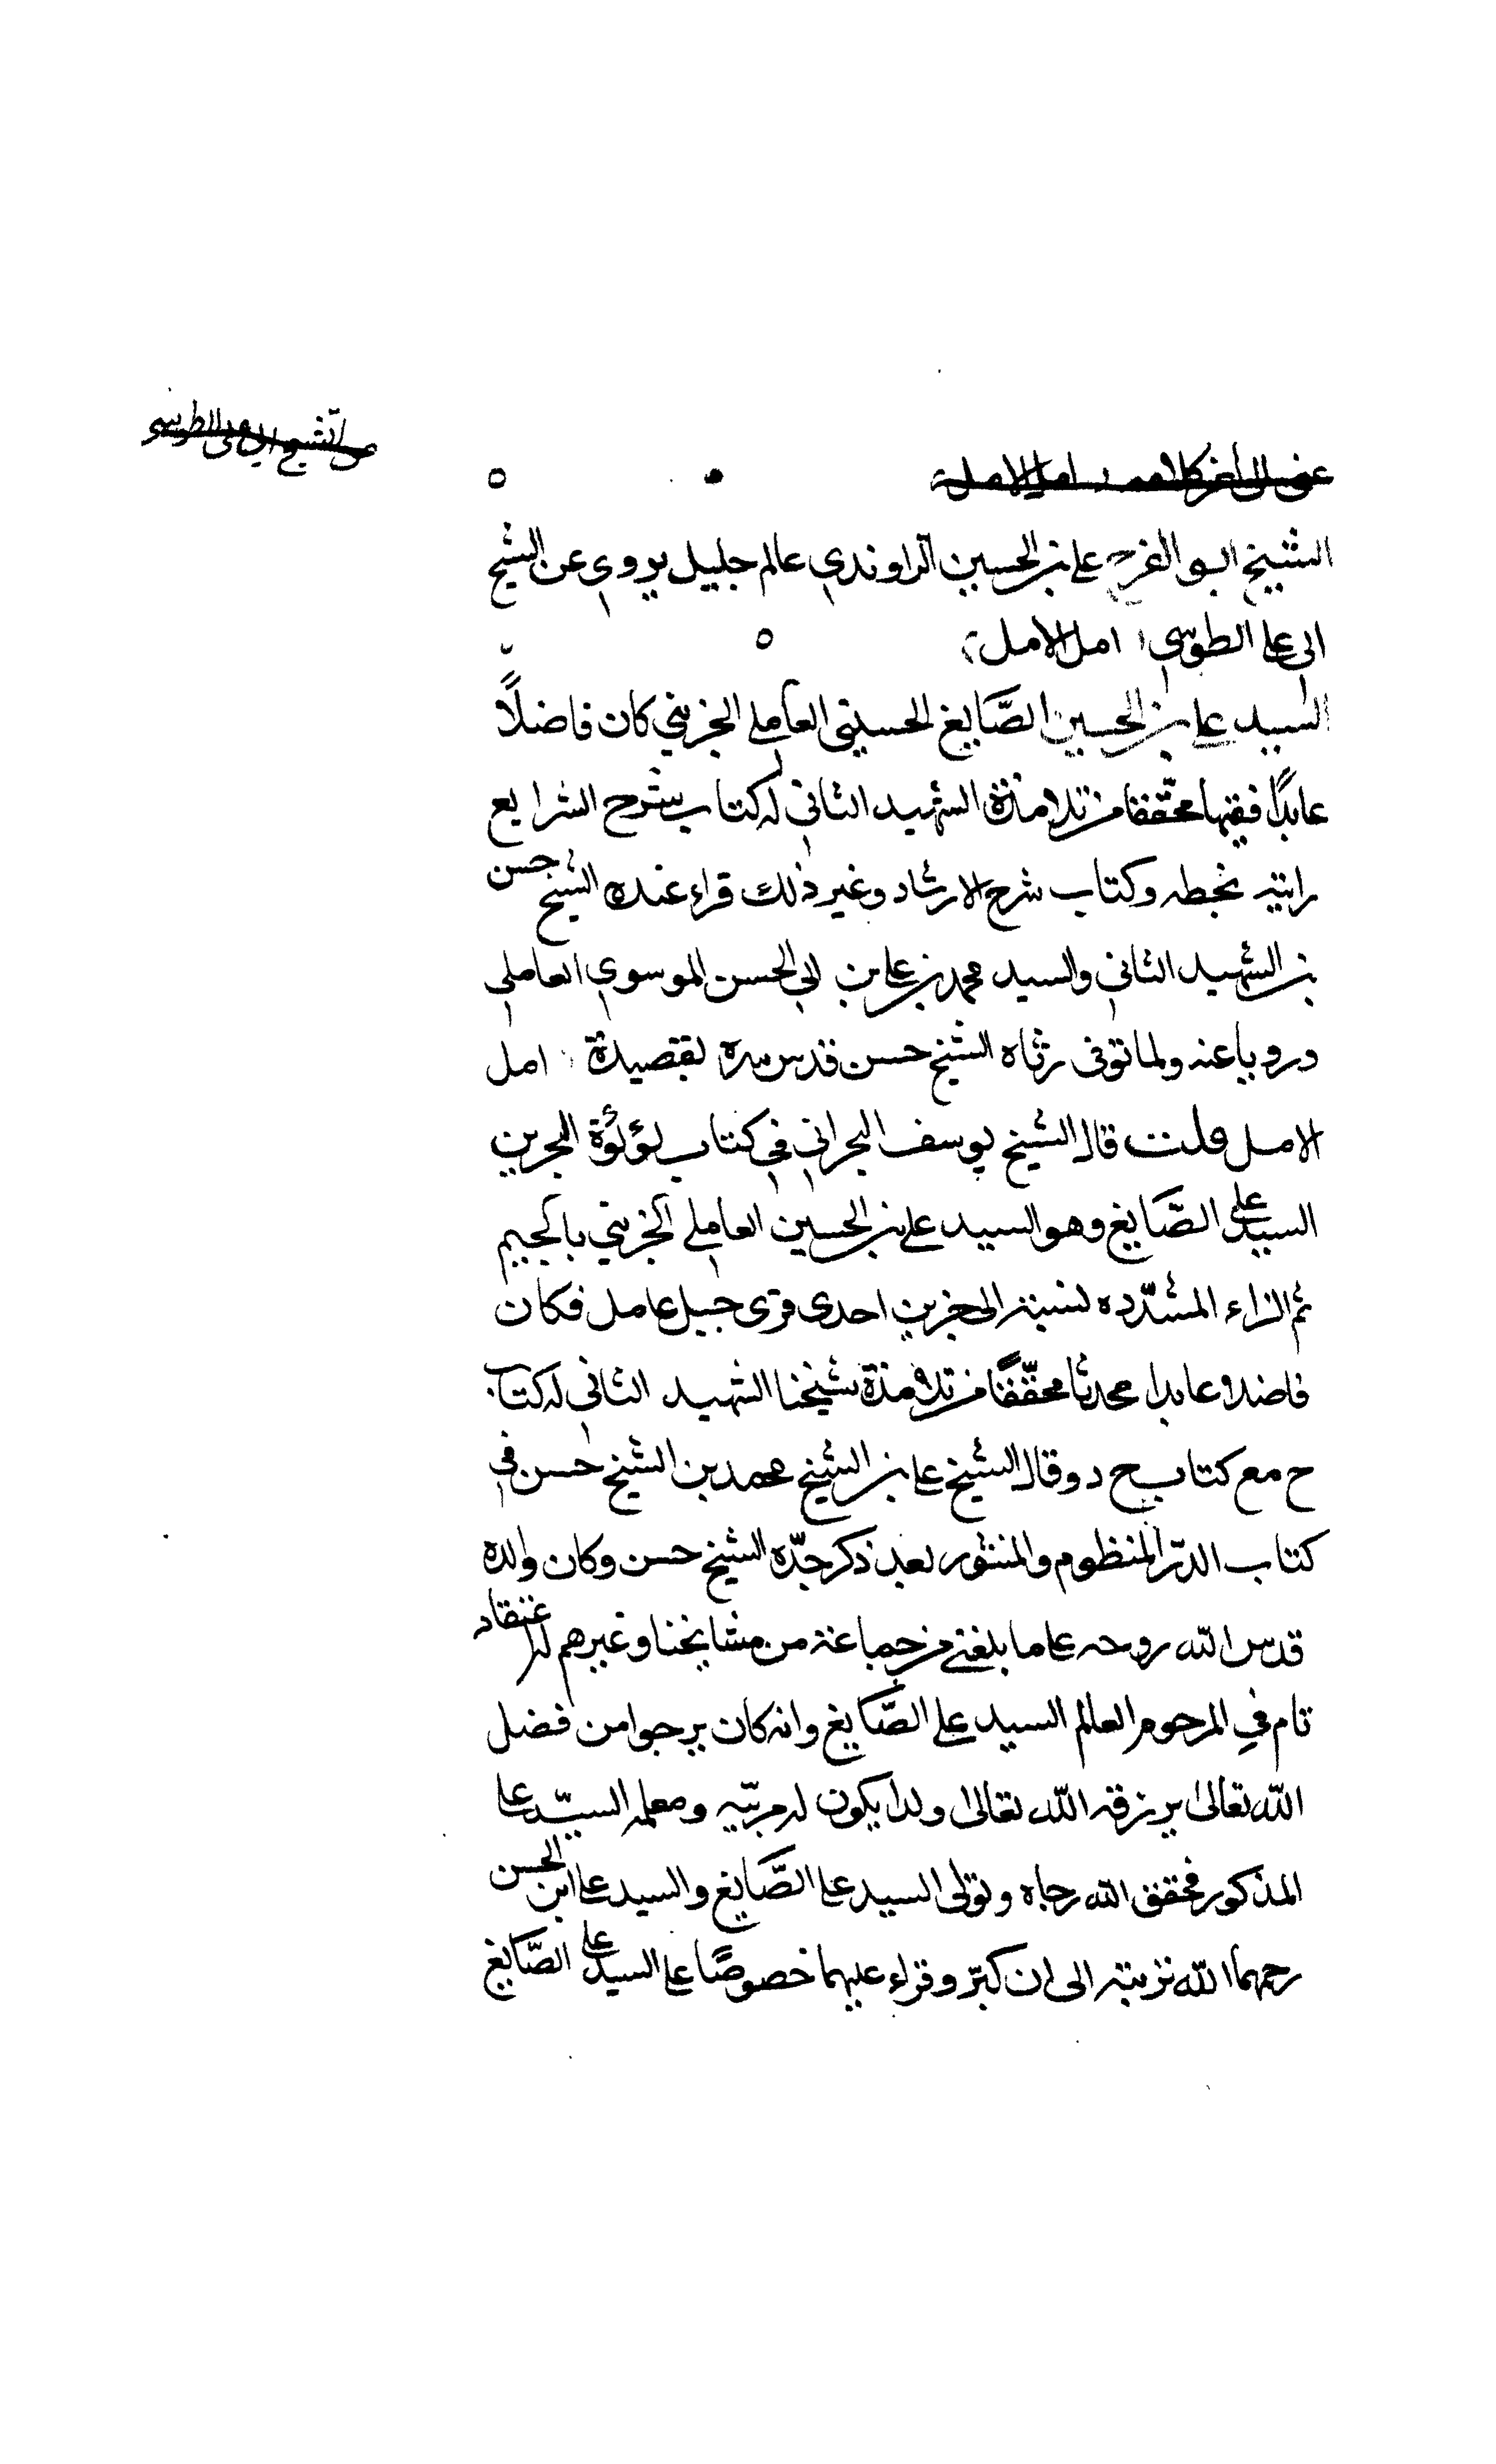 عن الشيخ ابي علي الطوسي
عنى الى اخر كلامه امل الامل
الشيخ ابو الفرج علي بن الحسين الراوندي عالم جليل يروي عن الشيخ
ابي علي الطوسي امل الامل
السيد علي بن الحسين الصَّايغ الحسيني العاملي الجزيني كان فاضلًا
عابدًا فقيها محقّقا من تلامذة الشهيد الثاني له كتاب شرح الشرايع
رايته بخطه وكتاب شرح الارشاد وغير ذلك قراء عنده الشيخ حسن
بن الشهيد الثاني والسيد محمد بن علي بن ابي الحسن الموسوي العاملي
ورويا عنه ولما توفى رثاه الشيخ حسن قدس سره بقصيدة امل
الامل قلت قال الشيخ يوسف البحراني في كتاب لؤلؤة البحرين
السيد علي الصَّايغ وهو السيد علي بن الحسين العاملي الجزيني بالجيم
ثم الزاء المشدّده نسبة الى جزين احدى قرى جبل عامل فكان
فاضلا عابدا محدثا محقّقًا من تلامذة شيخنا الشهيد الثاني له كتاب
ح مع كتاب ح د وقال الشيخ علي بن الشيخ محمد بن الشيخ حسن في
كتاب الدرّ المنظوم والمنثور بعد ذكر جدّه الشيخ حسن وكان والده
قدس الله روحه على ما بلغني من جماعة من مشايخنا وغيرهم له اعتقاد
تام في المرحوم العالم السيد علي الصَّايغ وانه كان يرجوا من فضل
الله تعالى يرزقه الله تعالى ولدا يكون له مربّيه ومعلمه السيّد علي
المذكور فحقق الله رجاه وتولى السيد علي الصَّايغ والسيد علي ابن الحسن
رحمهما الله تربيته الى ان كبّر وقراء عليهما خصوصًا على السيد علي الصَّايغ